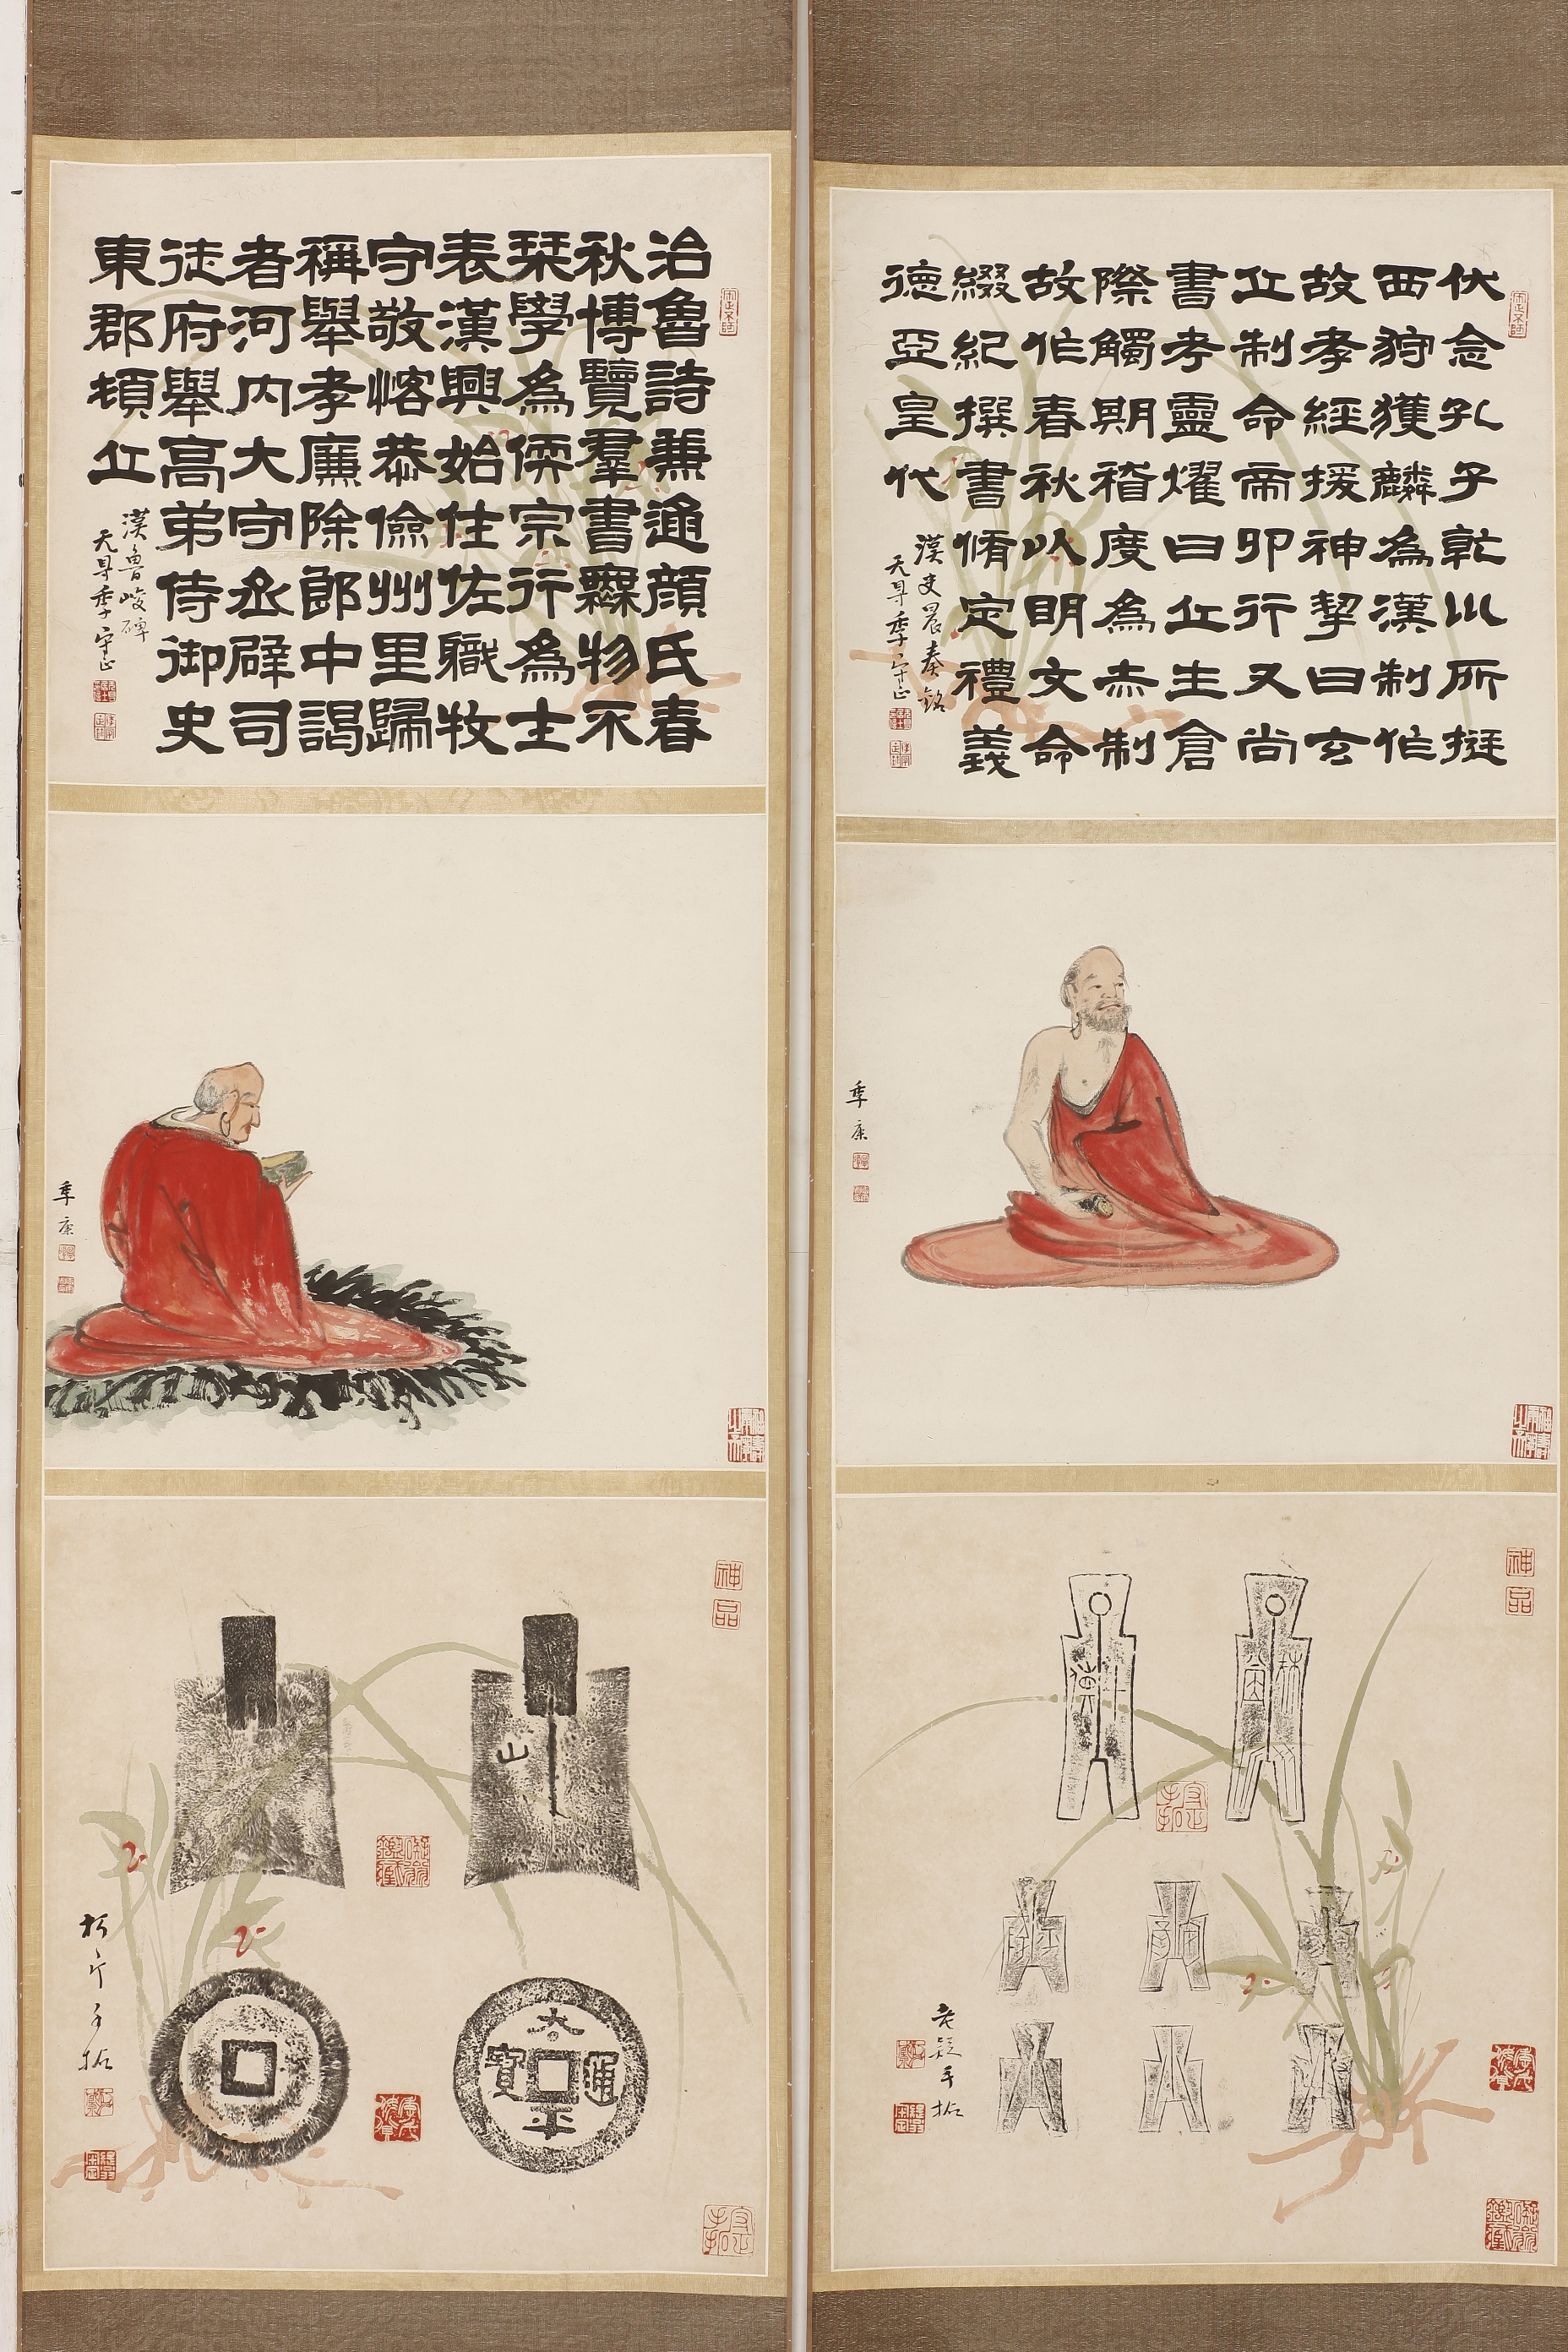 伏念孔子乾川所挺
西狩獲麟為漢制作
故孝經援神挈曰玄
丘制命帝卯行又尚
書考靈燿曰丘生倉
際觸期稽度為赤制
故作春秋以明文命
綴紀撰書脩定禮義
德亞皇代
漢史晨奏銘
季守正
季康
神品
手拓
治魯詩兼通顏氏春
秋博覽羣書無物不
栞學為儒宗行為士
表漢興始仕佐職牧
守敬恪恭儉州里歸
稱舉孝廉除郎中謁
者河內大守丞辟司
徒府舉高弟侍御史
東郡頓丘
漢魯峻碑
季守正
季康
神品
山
太平通寶
手拓